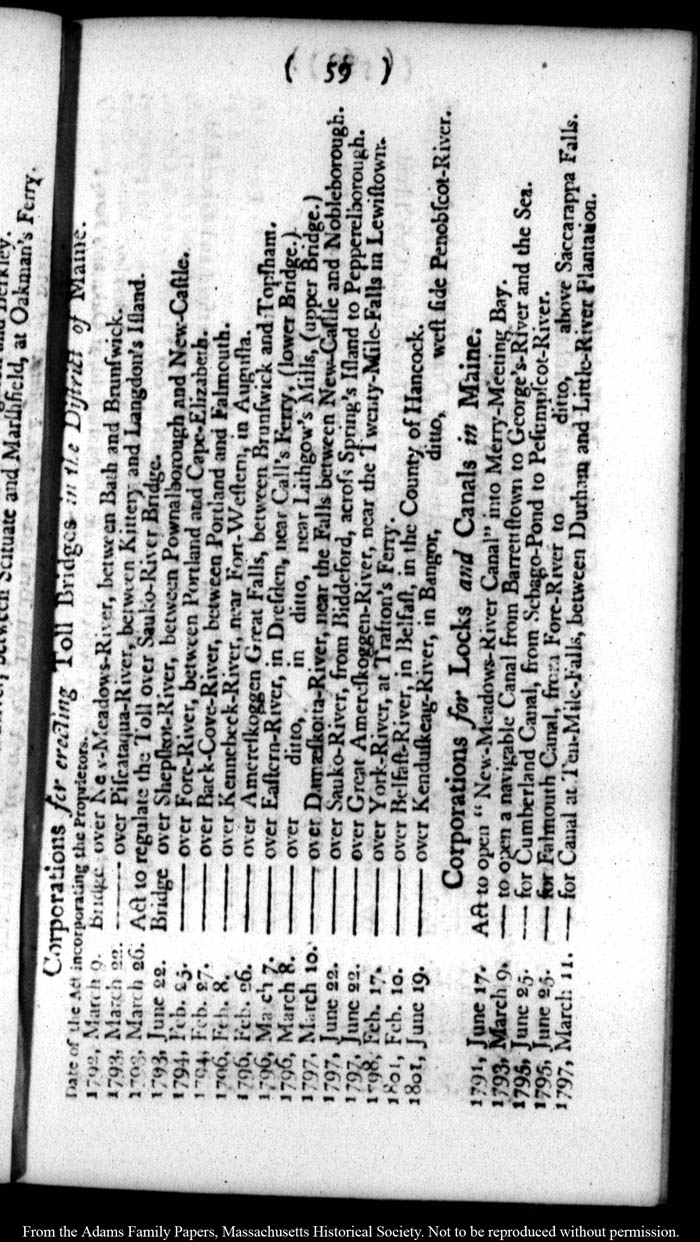 ( 59 )
and Berkley.
between Scituate and Marshfield, at Oakman's Ferry.
Corporations for erecting Toll Bridges in the District of Maine.
Date of the Act incorporating the Proprietors.
1792, March 9. Bridge over New-Meadows-River, between Bath and Brunſwick.
1793, March 22. —— over Piſcataqua-River, between Kittery and Langdon's Iſland.
1793, March 26. Act to regulate the Toll over Sauko-River Bridge.
1793, June 22. Bridge over Shepſkot-River, between Pownalborough and New-Caſtle.
1794, Feb. 25. —— over Fore-River, between Portland and Cape-Elizabeth.
1794, Feb. 27. —— over Back-Cove-River, between Portland and Falmouth.
1796, Feb. 8. —— over Kennebeck-River, near Fort-Weſtern, in Auguſta.
1796, Feb. 26. —— over Amereſkoggen Great Falls, between Brunſwick and Topſham.
1796, March 7. —— over Eaſtern-River, in Dreſden, near Call's Ferry, (lower Bridge.)
1796, March 8. —— over ditto, in ditto, near Lithgow's Mills, (upper Bridge.)
1797, March 10. —— over Damaſkotta-River, near the Falls between New-Caſtle and Nobleborough.
1797, June 22. —— over Sauko-River, from Biddeford, acroſs Spring's Iſland to Pepperelborough.
1797, June 22. —— over Great Amereſkoggen-River, near the Twenty-Mile-Falls in Lewiſtown.
1798, Feb. 17. —— over York-River, at Trafton's Ferry.
1801, Feb. 10. —— over Belfaſt-River, in Belfaſt, in the County of Hancock.
1801, June 19. —— over Kenduſkeag-River, in Bangor, ditto, weſt ſide Penobſcot-River.
Corporations for Locks and Canals in Maine.
1791, June 17. Act to open "New-Meadows-River Canal" into Merry-Meeting Bay.
1793, March 9. — to open a navigable Canal from Barrettſtown to George's-River and the Sea.
1795, June 25. — for Cumberland Canal, from Sebago-Pond to Peſumpſcot-River.
1795, June 25. — for Falmouth Canal, from Fore-River to ditto, above Saccarappa Falls.
1797, March 11. — for Canal at Ten-Mile-Falls, between Durham and Little-River Plantation.
From the Adams Family Papers, Massachusetts Historical Society. Not to be reproduced without permission.